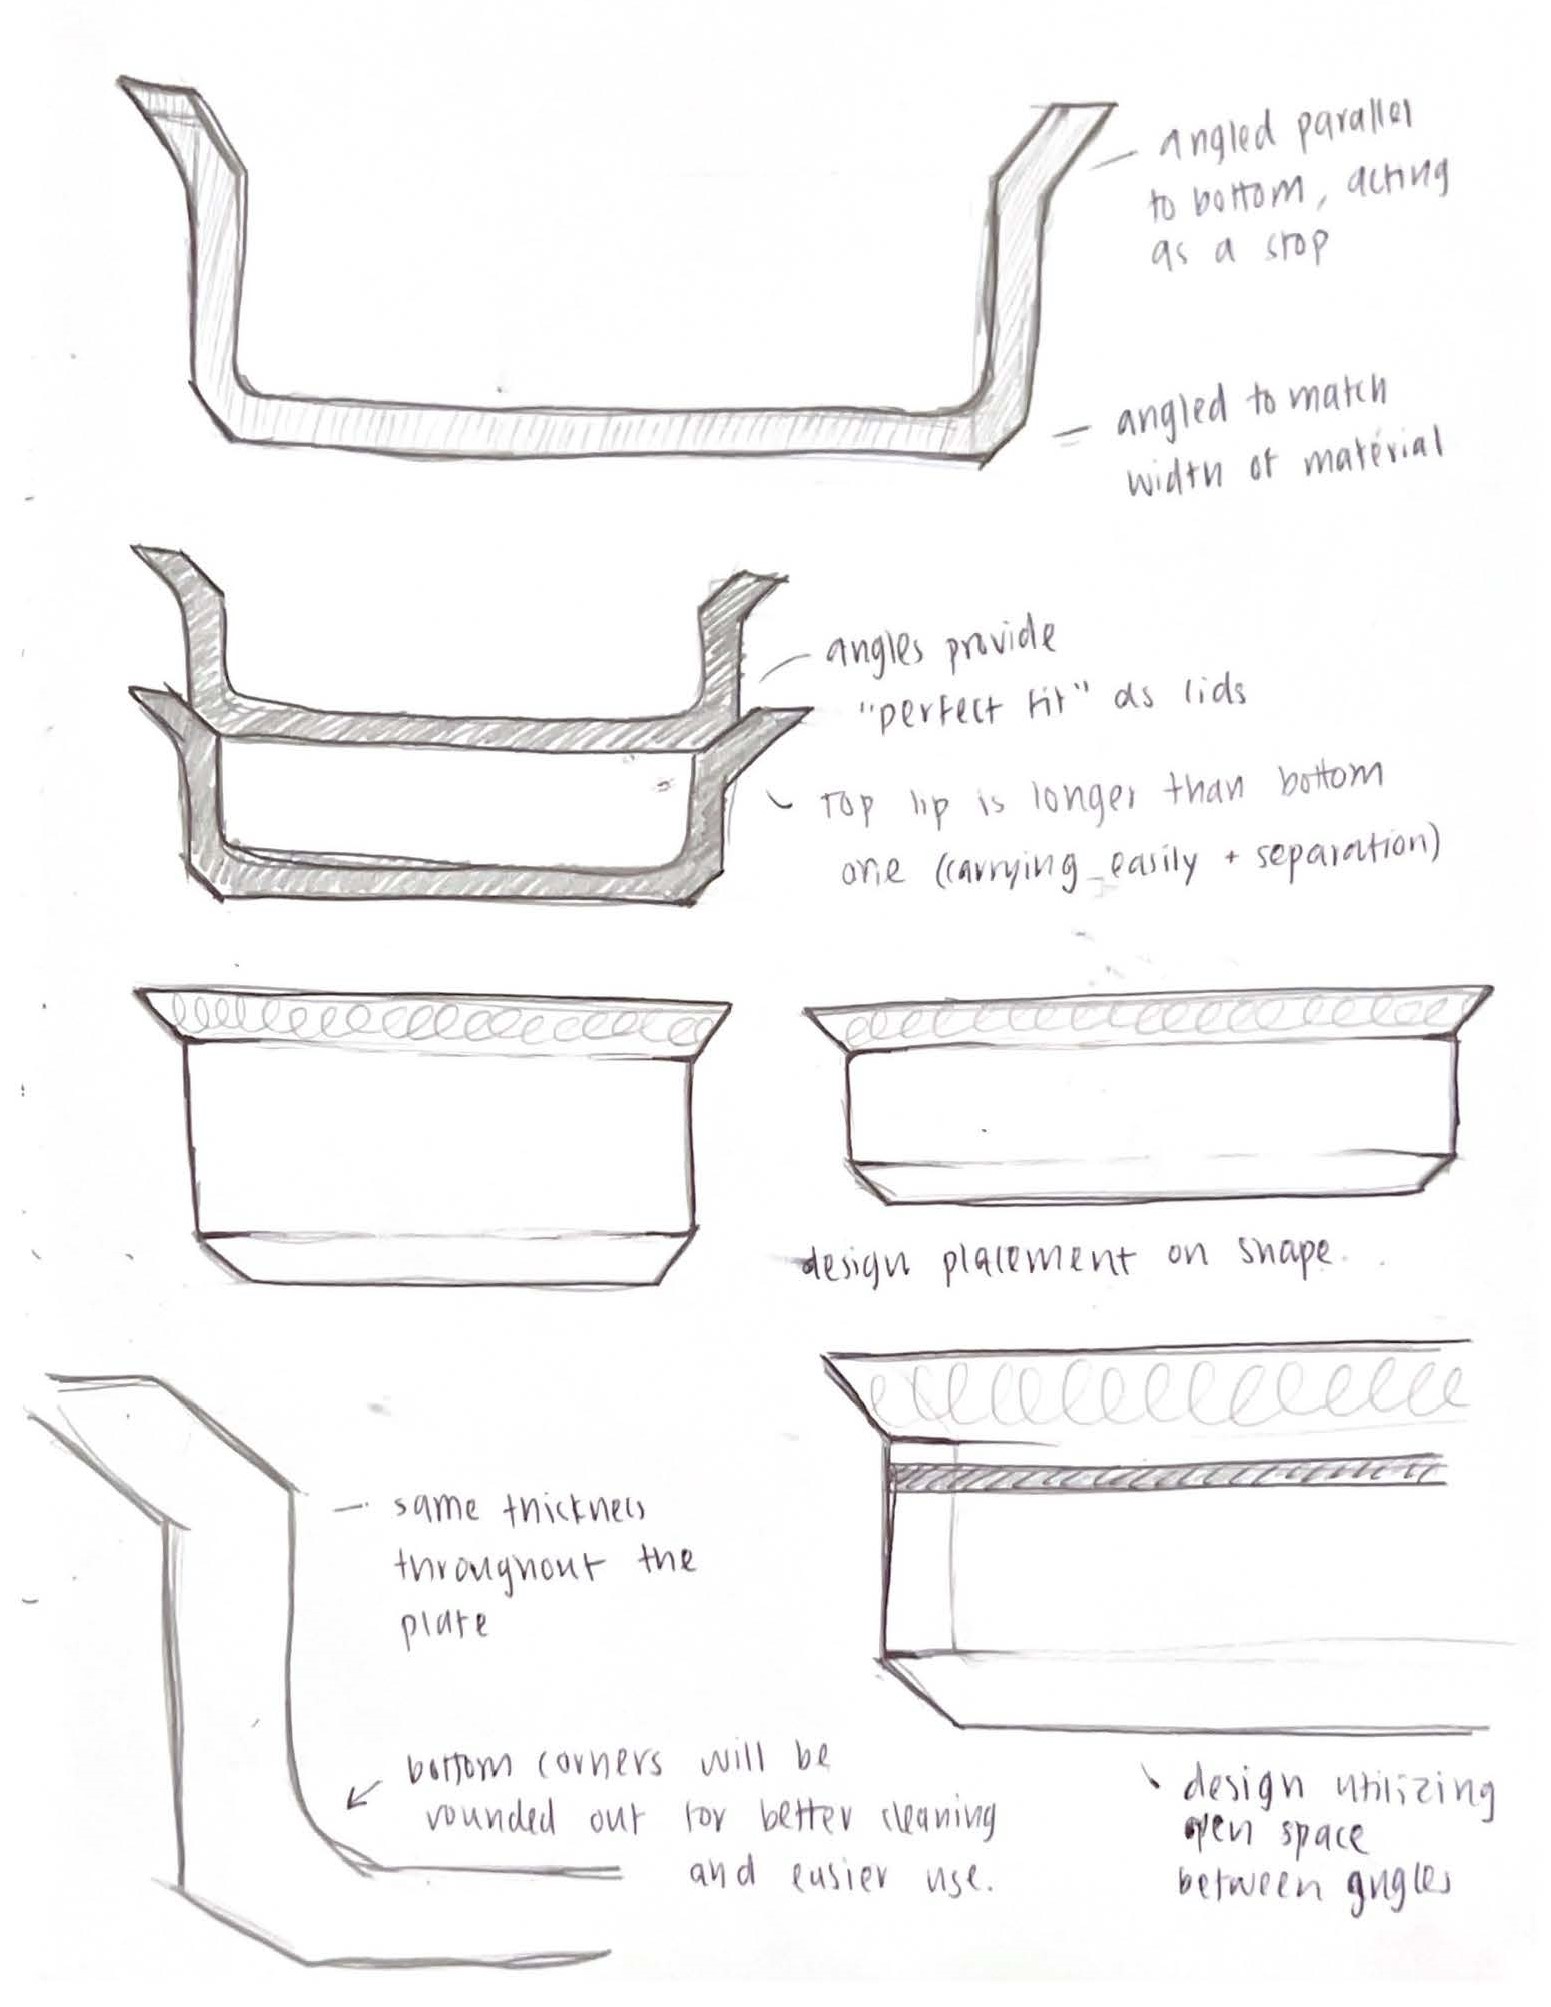 angled parallel
to bottom, acting
as a stop
angled to match
width of material
angles provide
"perfect fit" as lids
Top lip is longer than bottom
one (carrying easily + separation)
design placement on shape.
same thickness
throughout the
plate
bottom corners will be
rounded out for better cleaning
and easier use.
design utilizing
open space
between angles